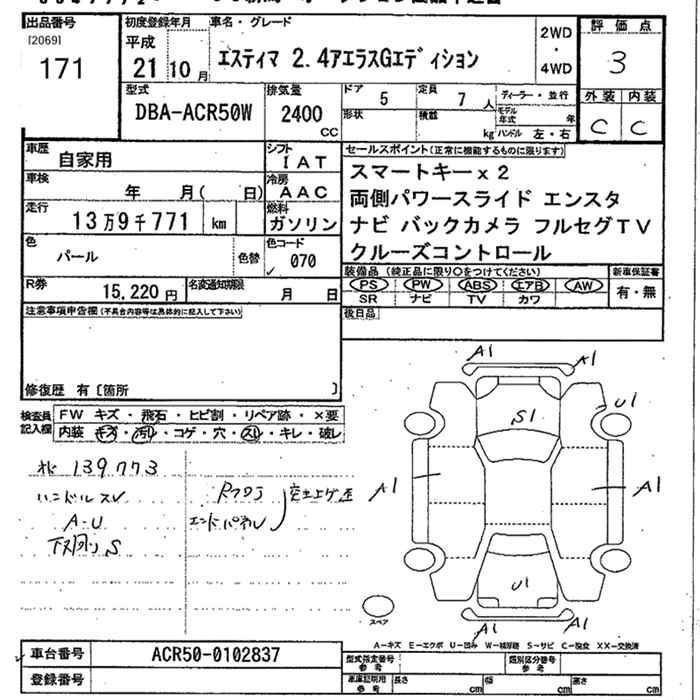 出品番号
[2069]
171
初度登録年月
平成
21 10 月
車名・グレード
エスティマ 2.4アエラスGエディション
2WD
・
4WD
評価点
3
外装 内装
C C
型式
DBA-ACR50W
排気量
2400
cc
ドア
5
形状
定員
7 人
積載
kg
ディーラー・並行
モデル年式 年
ハンドル 左・右
車歴
自家用
シフト
IAT
車検
年 月( 日)
冷房
AAC
走行
13万9千771 km
燃料
ガソリン
色
パール
色替
色コード
070
R券
15,220 円
名変通知期限
月 日
セールスポイント(正常に機能するものに限ります)
スマートキーx2
両側パワースライド エンスタ
ナビ バックカメラ フルセグTV
クルーズコントロール
装備品(純正品に限り○をつけてください)
PS PW ABS エアB AW
SR ナビ TV カワ
新車保証書
有・無
後日品
注意事項申告欄(不具合内容等は具体的に記入して下さい)
修復歴 有〔箇所 〕
検査員記入欄
FW キズ・飛石・ヒビ割・リペア跡・×要
内装 キズ・汚れ・コゲ・穴・スレ・キレ・破レ
139773
ハンドルスレ
A-U
S
エンドパネル
A1 A1
U1
S1
A1 A1
U1
A1 A1
スペア
A-キズ E-エクボ U-凹み W-補修跡 S-サビ C-腐食 XX-交換済
車台番号 ACR50-0102837
登録番号
型式指定番号
参考
類別区分番号
参考
車庫証明用
参考
長さ cm 幅 cm 高さ cm